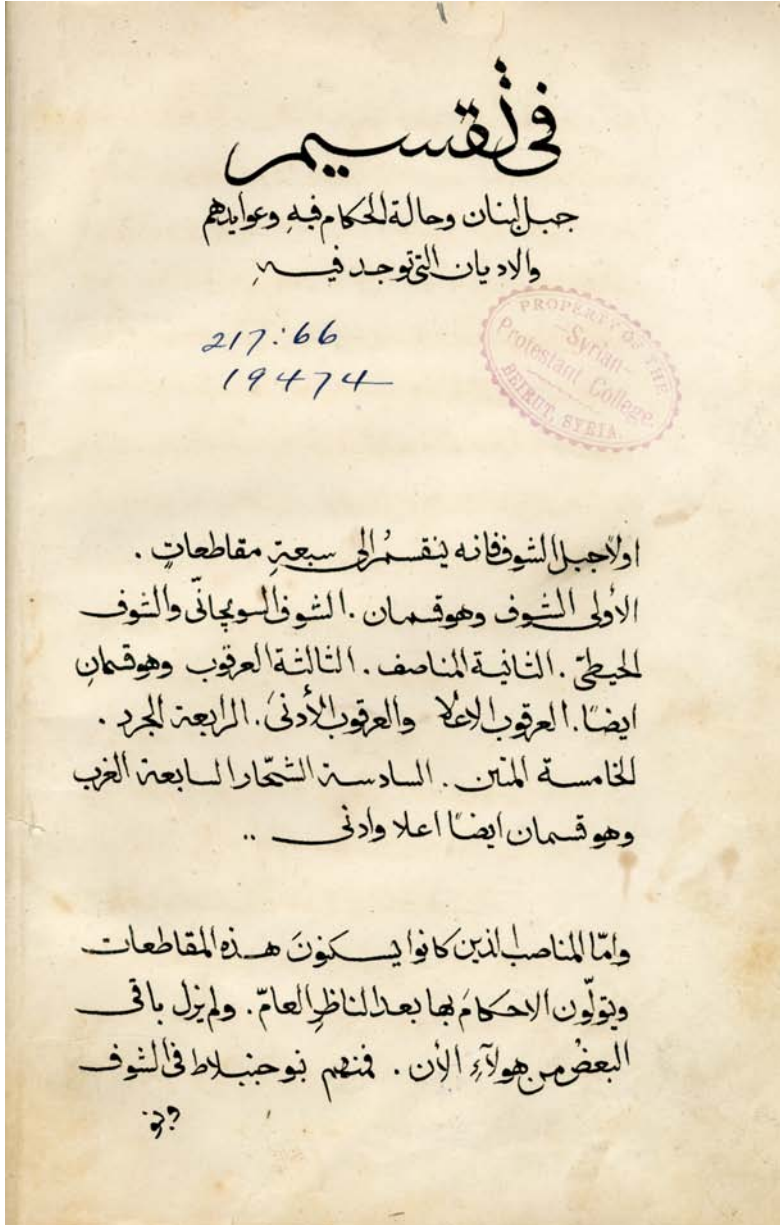 في تقسيم
جبل لبنان وحالة الحكام فيهِ وعوايدهم
والاديان التي توجد فيهِ
217:66
19474
PROPERTY OF THE
Syrian
Protestant College.
BEIRUT, SYRIA.
اولاً جبل الشوف فانه ينقسمُ الى سبعةِ مقاطعاتٍ .
الأولى الشوف وهو قسمان . الشوف السويجانّي والشوف
الحيطي . الثانية المناصف . الثالثة العرقوب وهو قسمانِ
ايضاً . العرقوب الاعلا والعرقوب الأدنى . الرابعة الجرد .
الخامسة المتن . السادسة الشحّار السابعة الغرب
وهو قسمان ايضاً اعلا وادنى ..
وامّا المناصب الذين كانوا يسكنونَ هذه المقاطعات
ويتولّون الاحكامَ بها بعد الناظرِ العامّ . ولم يزل باقى
البعضُ من هولآءِ الأن . فمنهم بنو جنبلاط في الشوف
وبنو